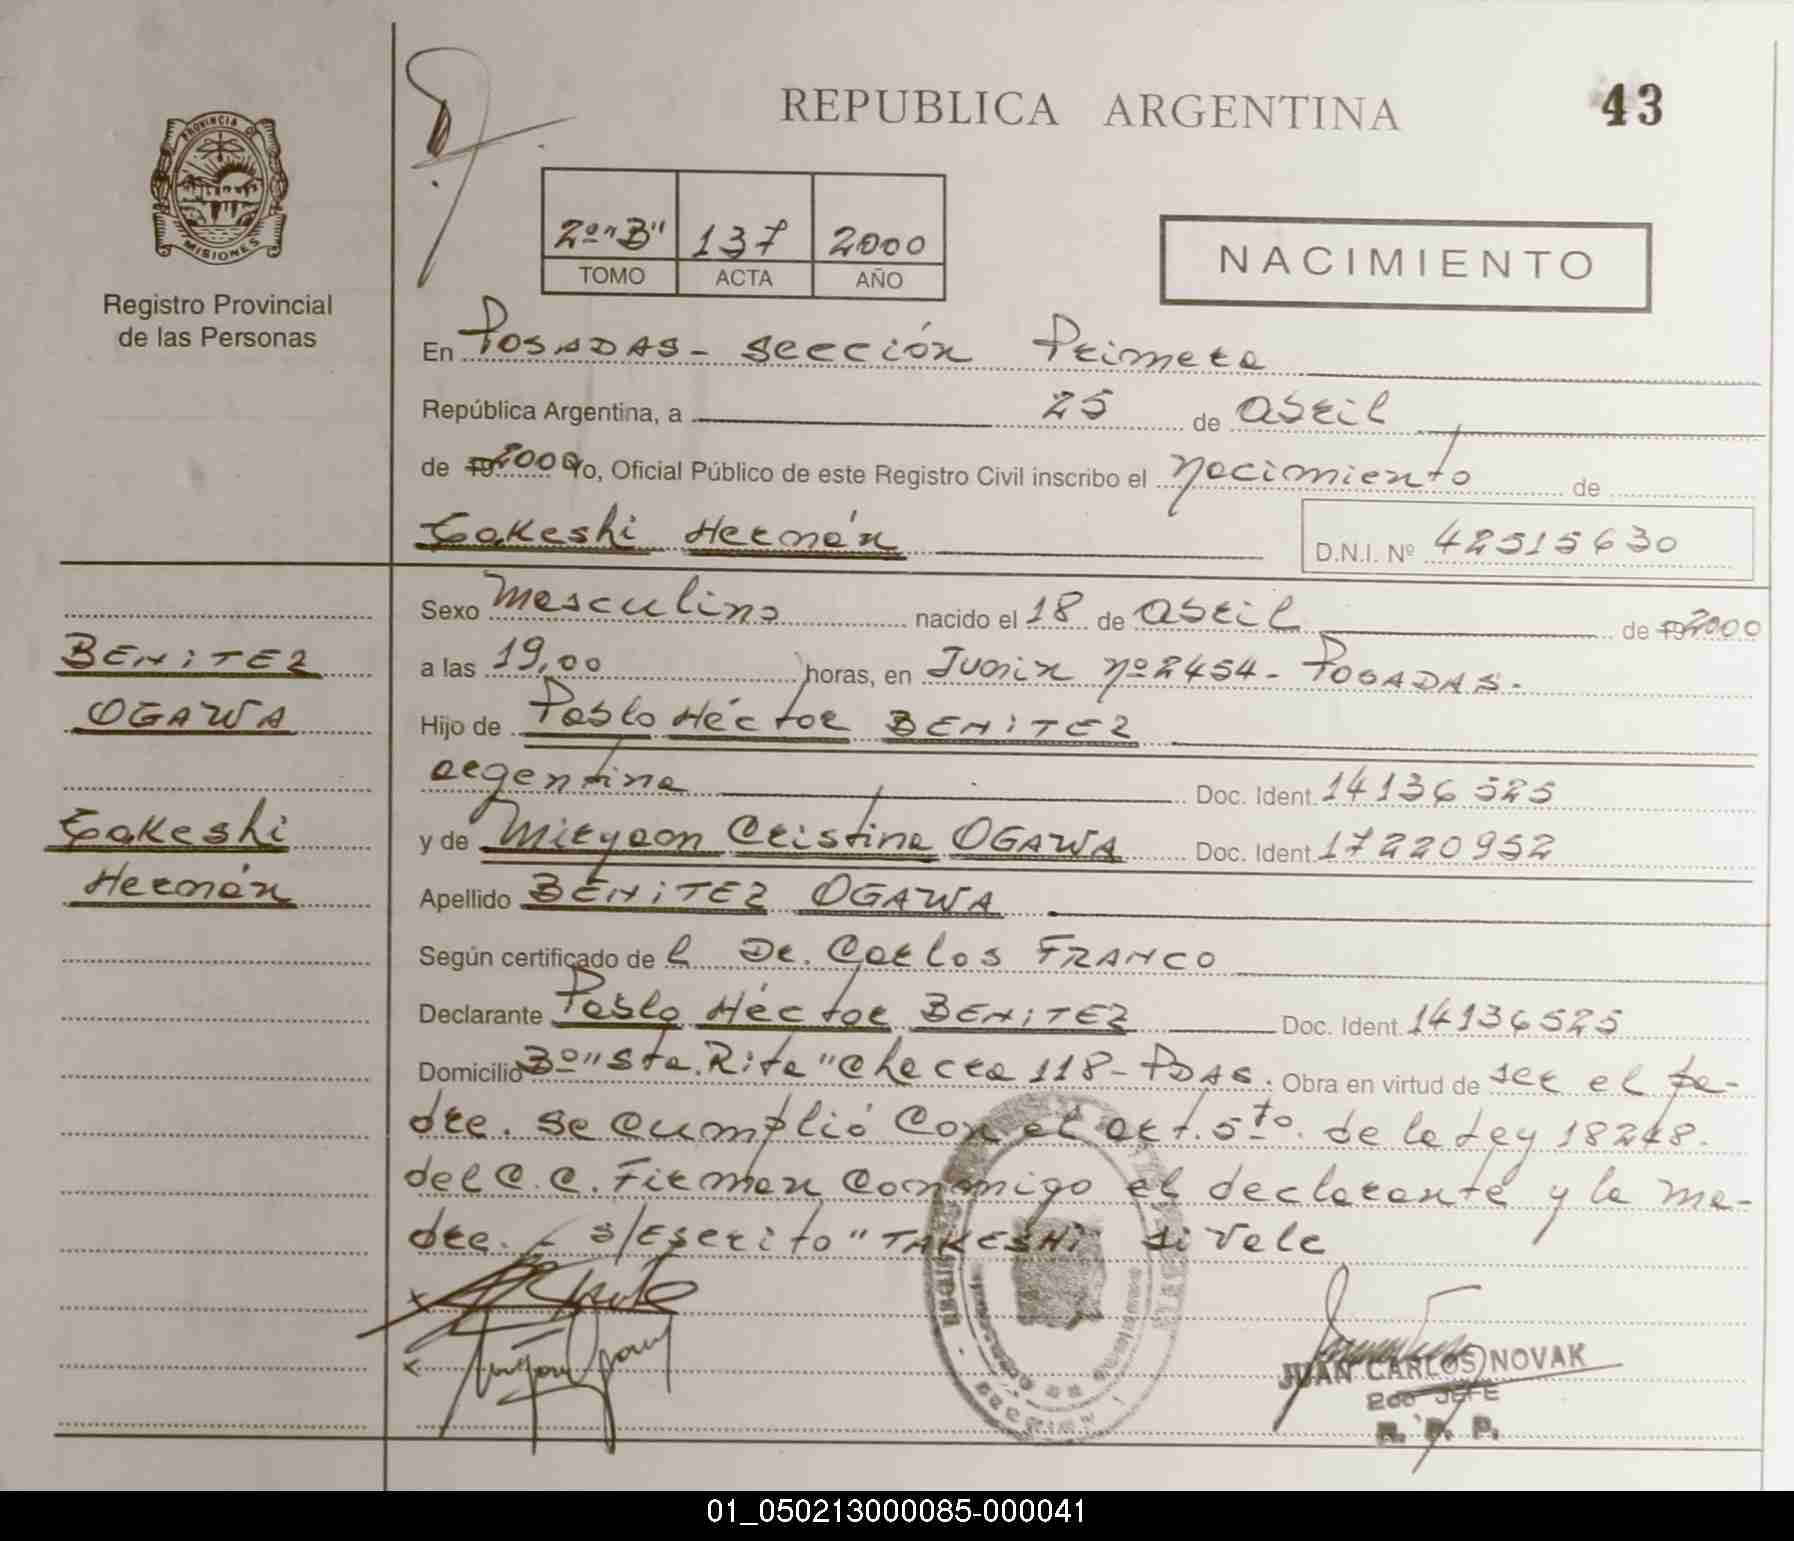 REPUBLICA ARGENTINA
43
PROVINCIA D
MISIONES
Registro Provincial
de las Personas
2º "B" 137 2000
TOMO ACTA AÑO
NACIMIENTO
En POSADAS - Sección Primera
República Argentina, a 25 de abril
de 19 2000 Yo, Oficial Público de este Registro Civil inscribo el nacimiento de
Takeshi Hernán
D.N.I. Nº 42515630
BENITEZ
OGAWA
Takeshi
Hernán
Sexo Masculino nacido el 18 de abril de 19 2000
a las 19,00 horas, en Junin nº 2454 - POSADAS.
Hijo de Pablo Héctor BENITEZ
argentina Doc. Ident. 14136525
y de Miryam Cristina OGAWA Doc. Ident. 17220952
Apellido BENITEZ OGAWA
Según certificado de l Dr. Carlos FRANCO
Declarante Pablo Héctor BENITEZ Doc. Ident. 14136525
Domicilio Bº "Sta. Rita" Chacra 118 - Pdas. Obra en virtud de ser el pa-
dre. Se cumplió con el art. 5to. de la Ley 18248.
del C.C. Firman conmigo el declarante y la ma-
dre. - s/Escrito "TAKESHi" si vale
JUAN CARLOS NOVAK
2do JEFE
R. P. P.
SECCION 1
01_050213000085-000041